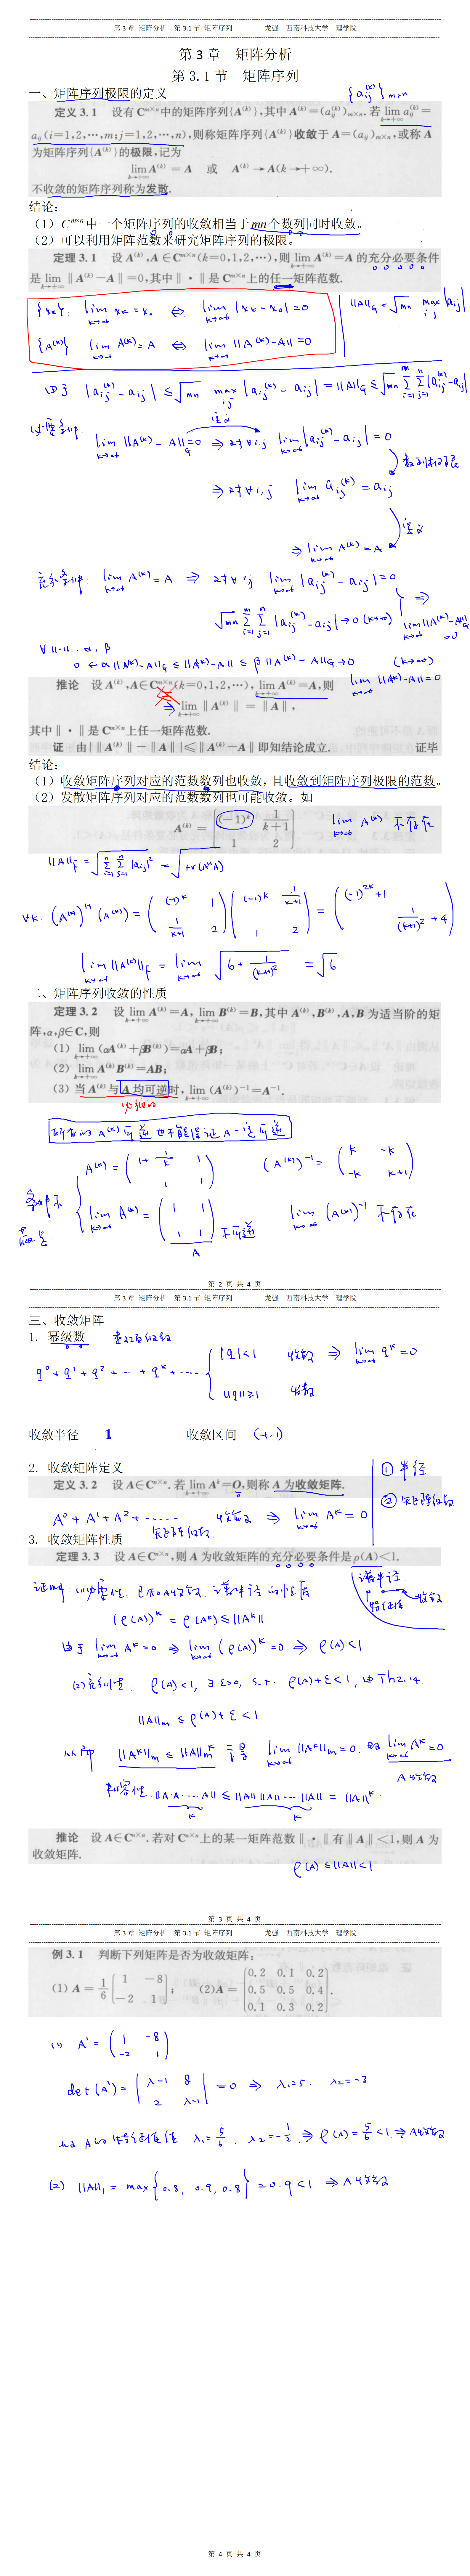 第 3 章 矩阵分析 第 3.1 节 矩阵序列 龙强 西南科技大学 理学院
第 3 章 矩阵分析
第 3.1 节 矩阵序列
一、矩阵序列极限的定义
{a_ij^(k)}_{m×n}
定义 3.1 设有 C^{m×n} 中的矩阵序列{A^(k)},其中 A^(k)=(a_ij^(k))_{m×n}. 若 lim_{k→+∞} a_ij^(k)=
a_ij (i=1,2,⋯,m; j=1,2,⋯,n),则称矩阵序列{A^(k)}收敛于 A=(a_ij)_{m×n},或称 A
为矩阵序列{A^(k)}的极限,记为
lim_{k→+∞} A^(k) = A 或 A^(k) → A(k→+∞).
不收敛的矩阵序列称为发散.
结论:
(1) C^{m×n} 中一个矩阵序列的收敛相当于 mn 个数列同时收敛。
(2) 可以利用矩阵范数来研究矩阵序列的极限。
定理 3.1 设 A^(k),A∈C^{m×n}(k=0,1,2,⋯),则 lim_{k→+∞} A^(k)=A 的充分必要条件
是 lim_{k→+∞} ‖A^(k)−A‖=0,其中‖·‖是 C^{m×n} 上的任一矩阵范数.
{x_k}: lim_{k→∞} x_k = x_0 ⇔ lim_{k→∞} |x_k − x_0| = 0
‖A‖_G = √mn max_{i,j} |a_ij|
{A^(k)} lim_{k→∞} A^(k) = A ⇔ lim_{k→∞} ‖A^(k) − A‖ = 0
由于 |a_ij^(k) − a_ij| ≤ √mn max_{ij} |a_ij^(k) − a_ij| = ‖A‖_G ≤ √mn Σ_{i=1}^m Σ_{j=1}^n |a_ij^(k) − a_ij|
必要条件: lim_{k→∞} ‖A^(k) − A‖_G = 0 ⇒ 对∀i,j lim_{k→∞} |a_ij^(k) − a_ij| = 0
⇒ 对∀i,j lim_{k→∞} a_ij^(k) = a_ij
数列极限
定义
⇒ lim_{k→∞} A^(k) = A
充分条件: lim_{k→∞} A^(k) = A ⇒ 对∀ij lim_{k→∞} |a_ij^(k) − a_ij| = 0
√mn Σ_{i=1}^m Σ_{j=1}^n |a_ij^(k) − a_ij| → 0 (k→∞) ⇒ lim_{k→∞} ‖A^(k) − A‖_G = 0
∀‖·‖ . α, β
0 ← α‖A^(k)−A‖_G ≤ ‖A^(k)−A‖ ≤ β‖A^(k)−A‖_G → 0 (k→∞)
lim_{k→∞} ‖A^(k)−A‖ = 0
推论 设 A^(k),A∈C^{m×n}(k=0,1,2,⋯), lim_{k→+∞} A^(k)=A,则
⇒ lim_{k→+∞} ‖A^(k)‖ = ‖A‖,
其中‖·‖是 C^{m×n} 上任一矩阵范数.
证 由|‖A^(k)‖−‖A‖|≤‖A^(k)−A‖即知结论成立. 证毕
结论:
(1) 收敛矩阵序列对应的范数数列也收敛,且收敛到矩阵序列极限的范数。
(2) 发散矩阵序列对应的范数数列也可能收敛。如
A^(k) = [(−1)^k 1/(k+1); 1 2]
lim_{k→∞} A^(k) 不存在
‖A‖_F = √(Σ_{i=1}^m Σ_{j=1}^n |a_ij|²) = √tr(A^H A)
∀k: (A^(k))^H (A^(k)) = ((−1)^k 1; 1/(k+1) 2) ((−1)^k 1/(k+1); 1 2) = ((−1)^{2k}+1 ; 1/(k+1)² + 4)
lim_{k→∞} ‖A^(k)‖_F = lim_{k→∞} √(6 + 1/(k+1)²) = √6
二、矩阵序列收敛的性质
定理 3.2 设 lim_{k→+∞} A^(k)=A, lim_{k→+∞} B^(k)=B,其中 A^(k),B^(k),A,B 为适当阶的矩
阵,α,β∈C,则
(1) lim_{k→+∞} (αA^(k)+βB^(k))=αA+βB;
(2) lim_{k→+∞} A^(k)B^(k)=AB;
(3) 当 A^(k)与 A 均可逆时, lim_{k→+∞} (A^(k))^{−1}=A^{−1}.
所有的 A^(k) 可逆也不能保证 A 一定可逆
A^(k) = (1+1/k 1; 1 1) (A^(k))^{−1} = (k −k; −k k+1)
lim_{k→∞} A^(k) = (1 1; 1 1) 不可逆 lim_{k→∞} (A^(k))^{−1} 不存在
A
第 2 页 共 4 页
第 3 章 矩阵分析 第 3.1 节 矩阵序列 龙强 西南科技大学 理学院
三、收敛矩阵
1. 幂级数
q^0 + q^1 + q^2 + ⋯ + q^k + ⋯ { |q|<1 收敛 ⇒ lim_{k→∞} q^k = 0
|q|≥1 发散
收敛半径 1 收敛区间 (−1, 1)
2. 收敛矩阵定义
① 半径
定义 3.2 设 A∈C^{n×n}.若 lim_{k→+∞} A^k=O,则称 A 为收敛矩阵.
② 矩阵级数
A^0 + A^1 + A^2 + ⋯⋯ 收敛 ⇒ lim_{k→∞} A^k = 0
矩阵级数
3. 收敛矩阵性质
定理 3.3 设 A∈C^{n×n},则 A 为收敛矩阵的充分必要条件是 ρ(A)<1.
谱半径
ρ 收敛
特征值
证明: (1) 必要性. 已知A收敛. 谱半径的性质
(ρ(A))^k = ρ(A^k) ≤ ‖A^k‖
由于 lim_{k→∞} A^k = 0 ⇒ lim_{k→∞} (ρ(A))^k = 0 ⇒ ρ(A)<1
(2) 充分性: ρ(A)<1, ∃ ε>0, s.t. ρ(A)+ε<1, 由Th2.4.
‖A‖_m ≤ ρ(A)+ε < 1
从而 ‖A^k‖_m ≤ ‖A‖_m^k 于是 lim_{k→∞} ‖A^k‖_m = 0. 故 lim_{k→∞} A^k = 0
A收敛
相容性 ‖A·A⋯A‖ ≤ ‖A‖‖A‖⋯‖A‖ = ‖A‖^k
k k
推论 设 A∈C^{n×n}.若对 C^{n×n} 上的某一矩阵范数‖·‖有‖A‖<1,则 A 为
收敛矩阵.
ρ(A) ≤ ‖A‖ < 1
第 3 页 共 4 页
第 3 章 矩阵分析 第 3.1 节 矩阵序列 龙强 西南科技大学 理学院
例 3.1 判断下列矩阵是否为收敛矩阵:
(1) A = 1/6 [1 −8; −2 1]; (2) A = [0.2 0.1 0.2; 0.5 0.5 0.4; 0.1 0.3 0.2].
(1) A' = (1 −8; −2 1)
det(A') = |λ−1 8; 2 λ−1| = 0 ⇒ λ₁=5. λ₂=−3
故 A的特征值 λ₁=5/6, λ₂=−1/2 ⇒ ρ(A)=5/6<1. ⇒ A收敛
(2) ‖A‖₁ = max{0.8, 0.9, 0.8} = 0.9 < 1 ⇒ A收敛
第 4 页 共 4 页